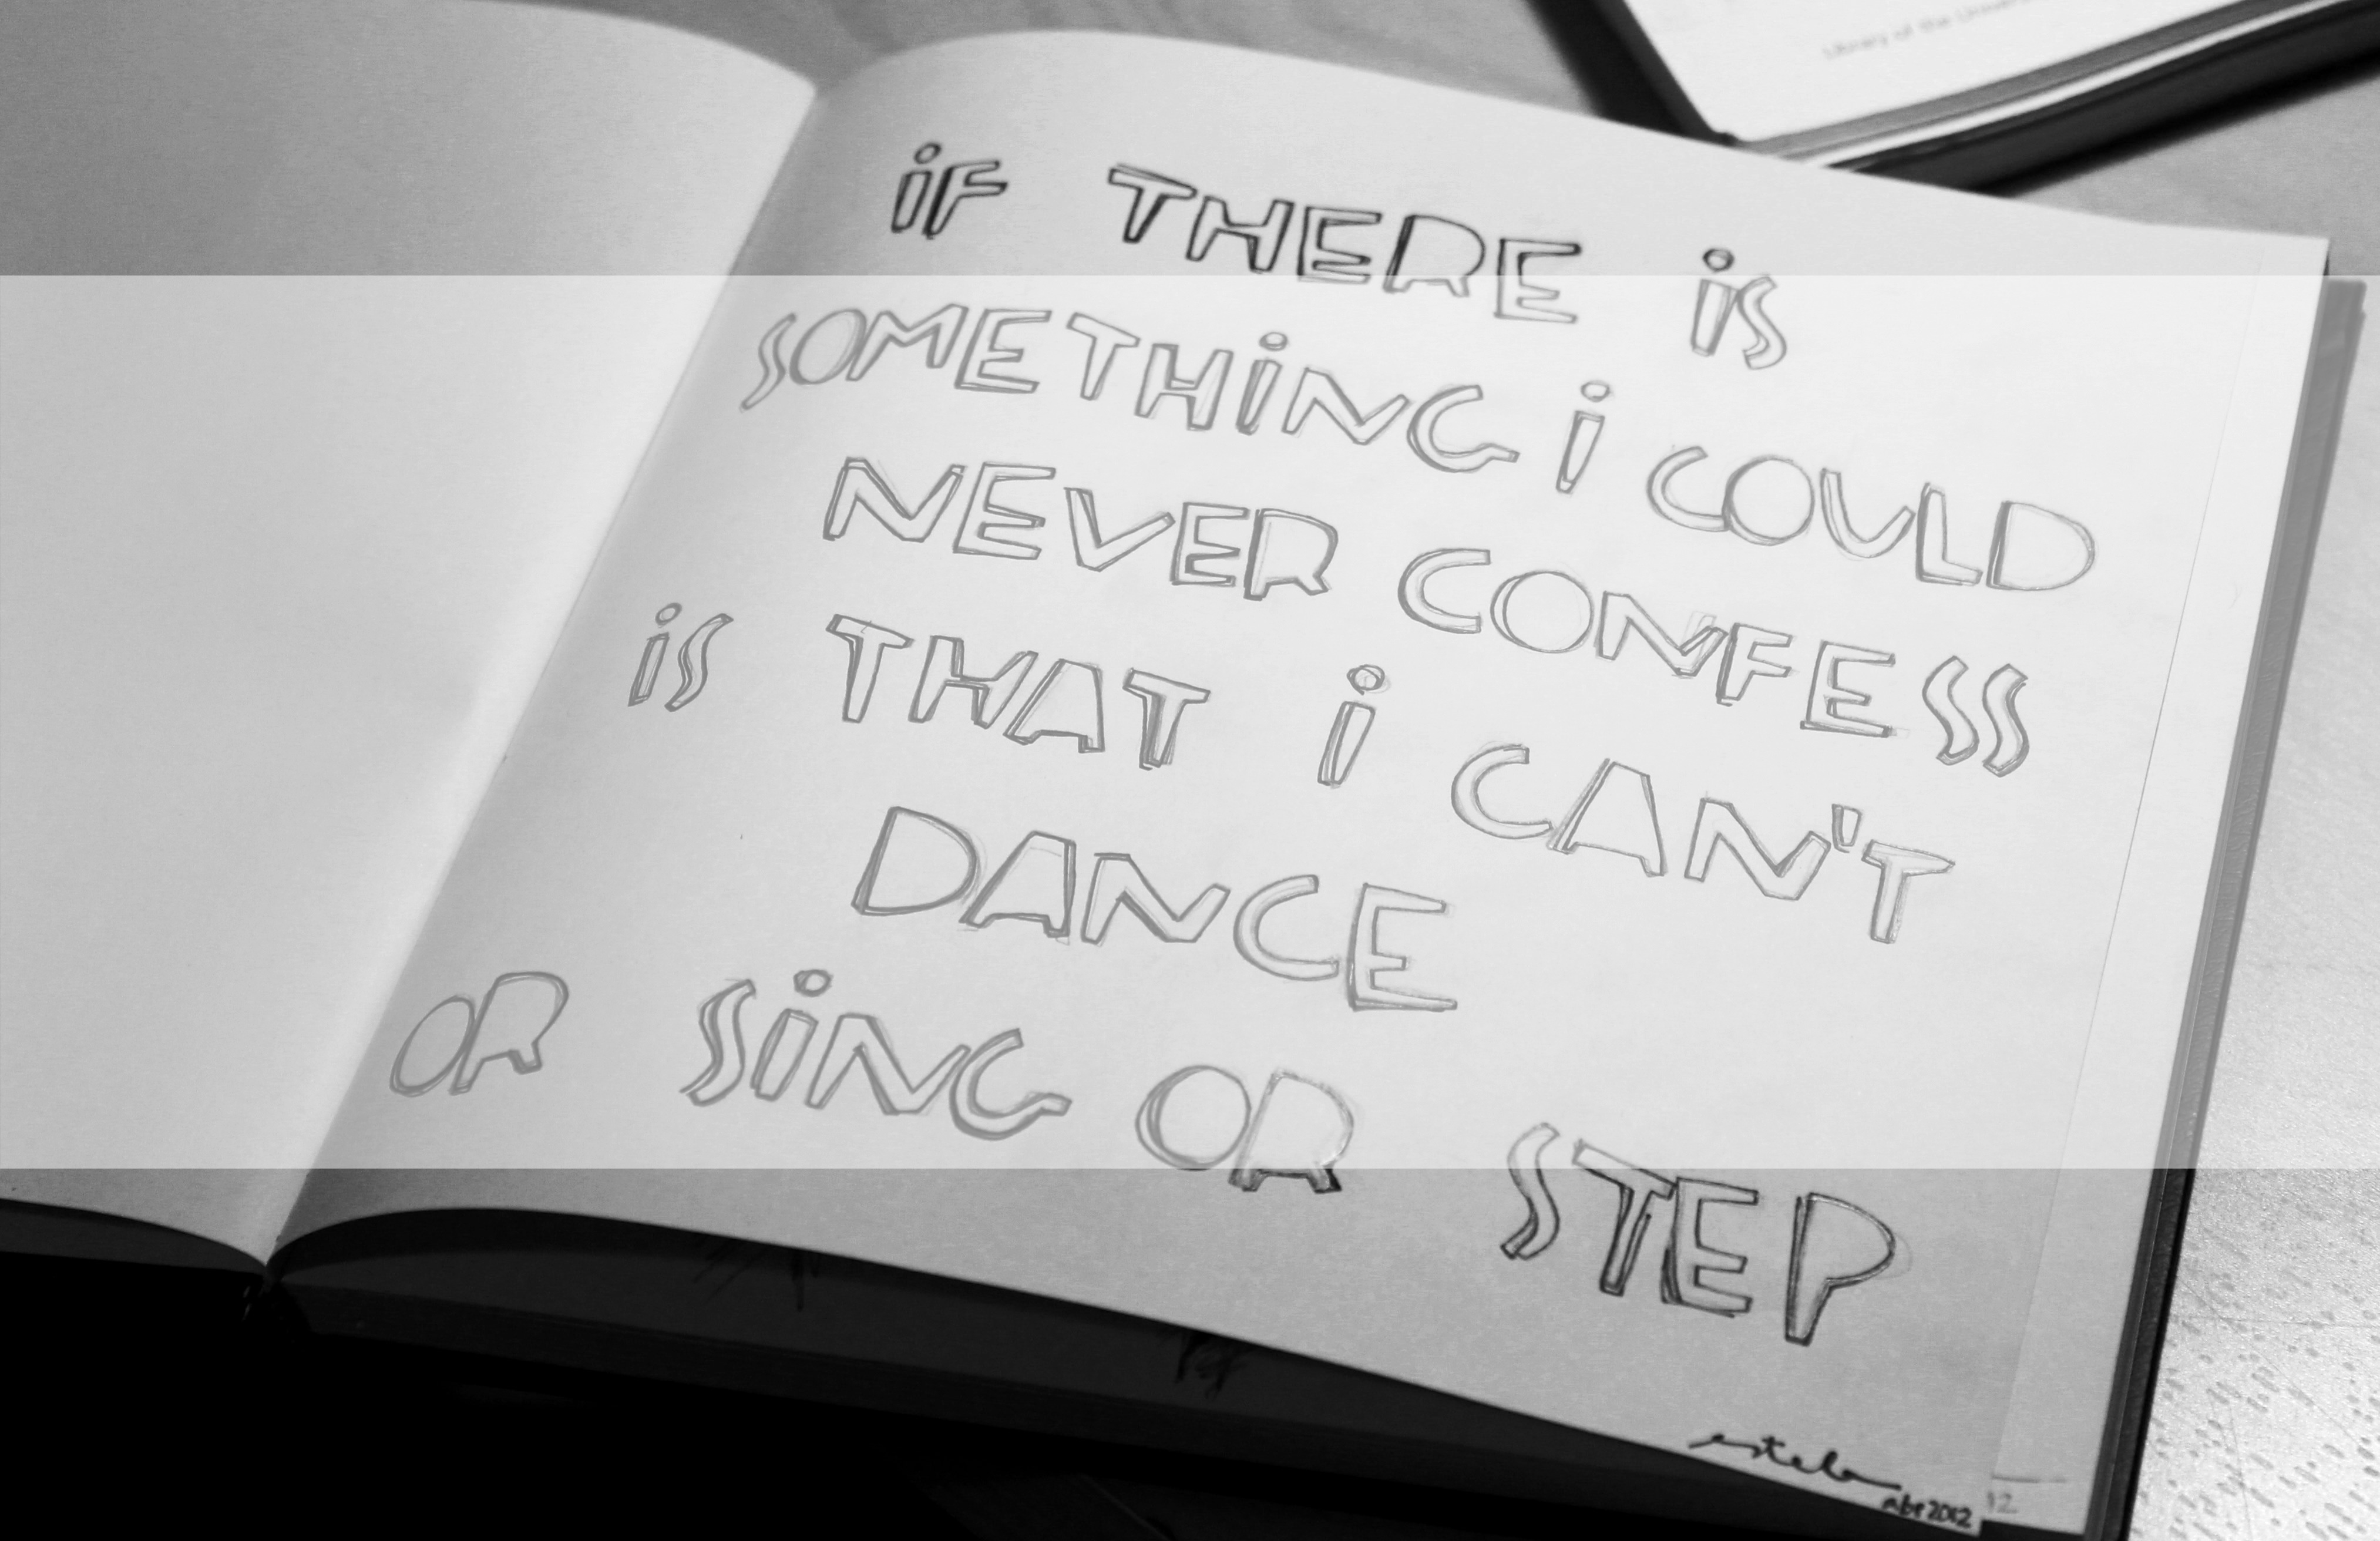 Library of the
iF THERE iS
SOMETHiNG i COULD
NEVER CONFESS
iS THAT i CAN'T
DANCE
OR SiNG OR STEP
estela
abr2012
12